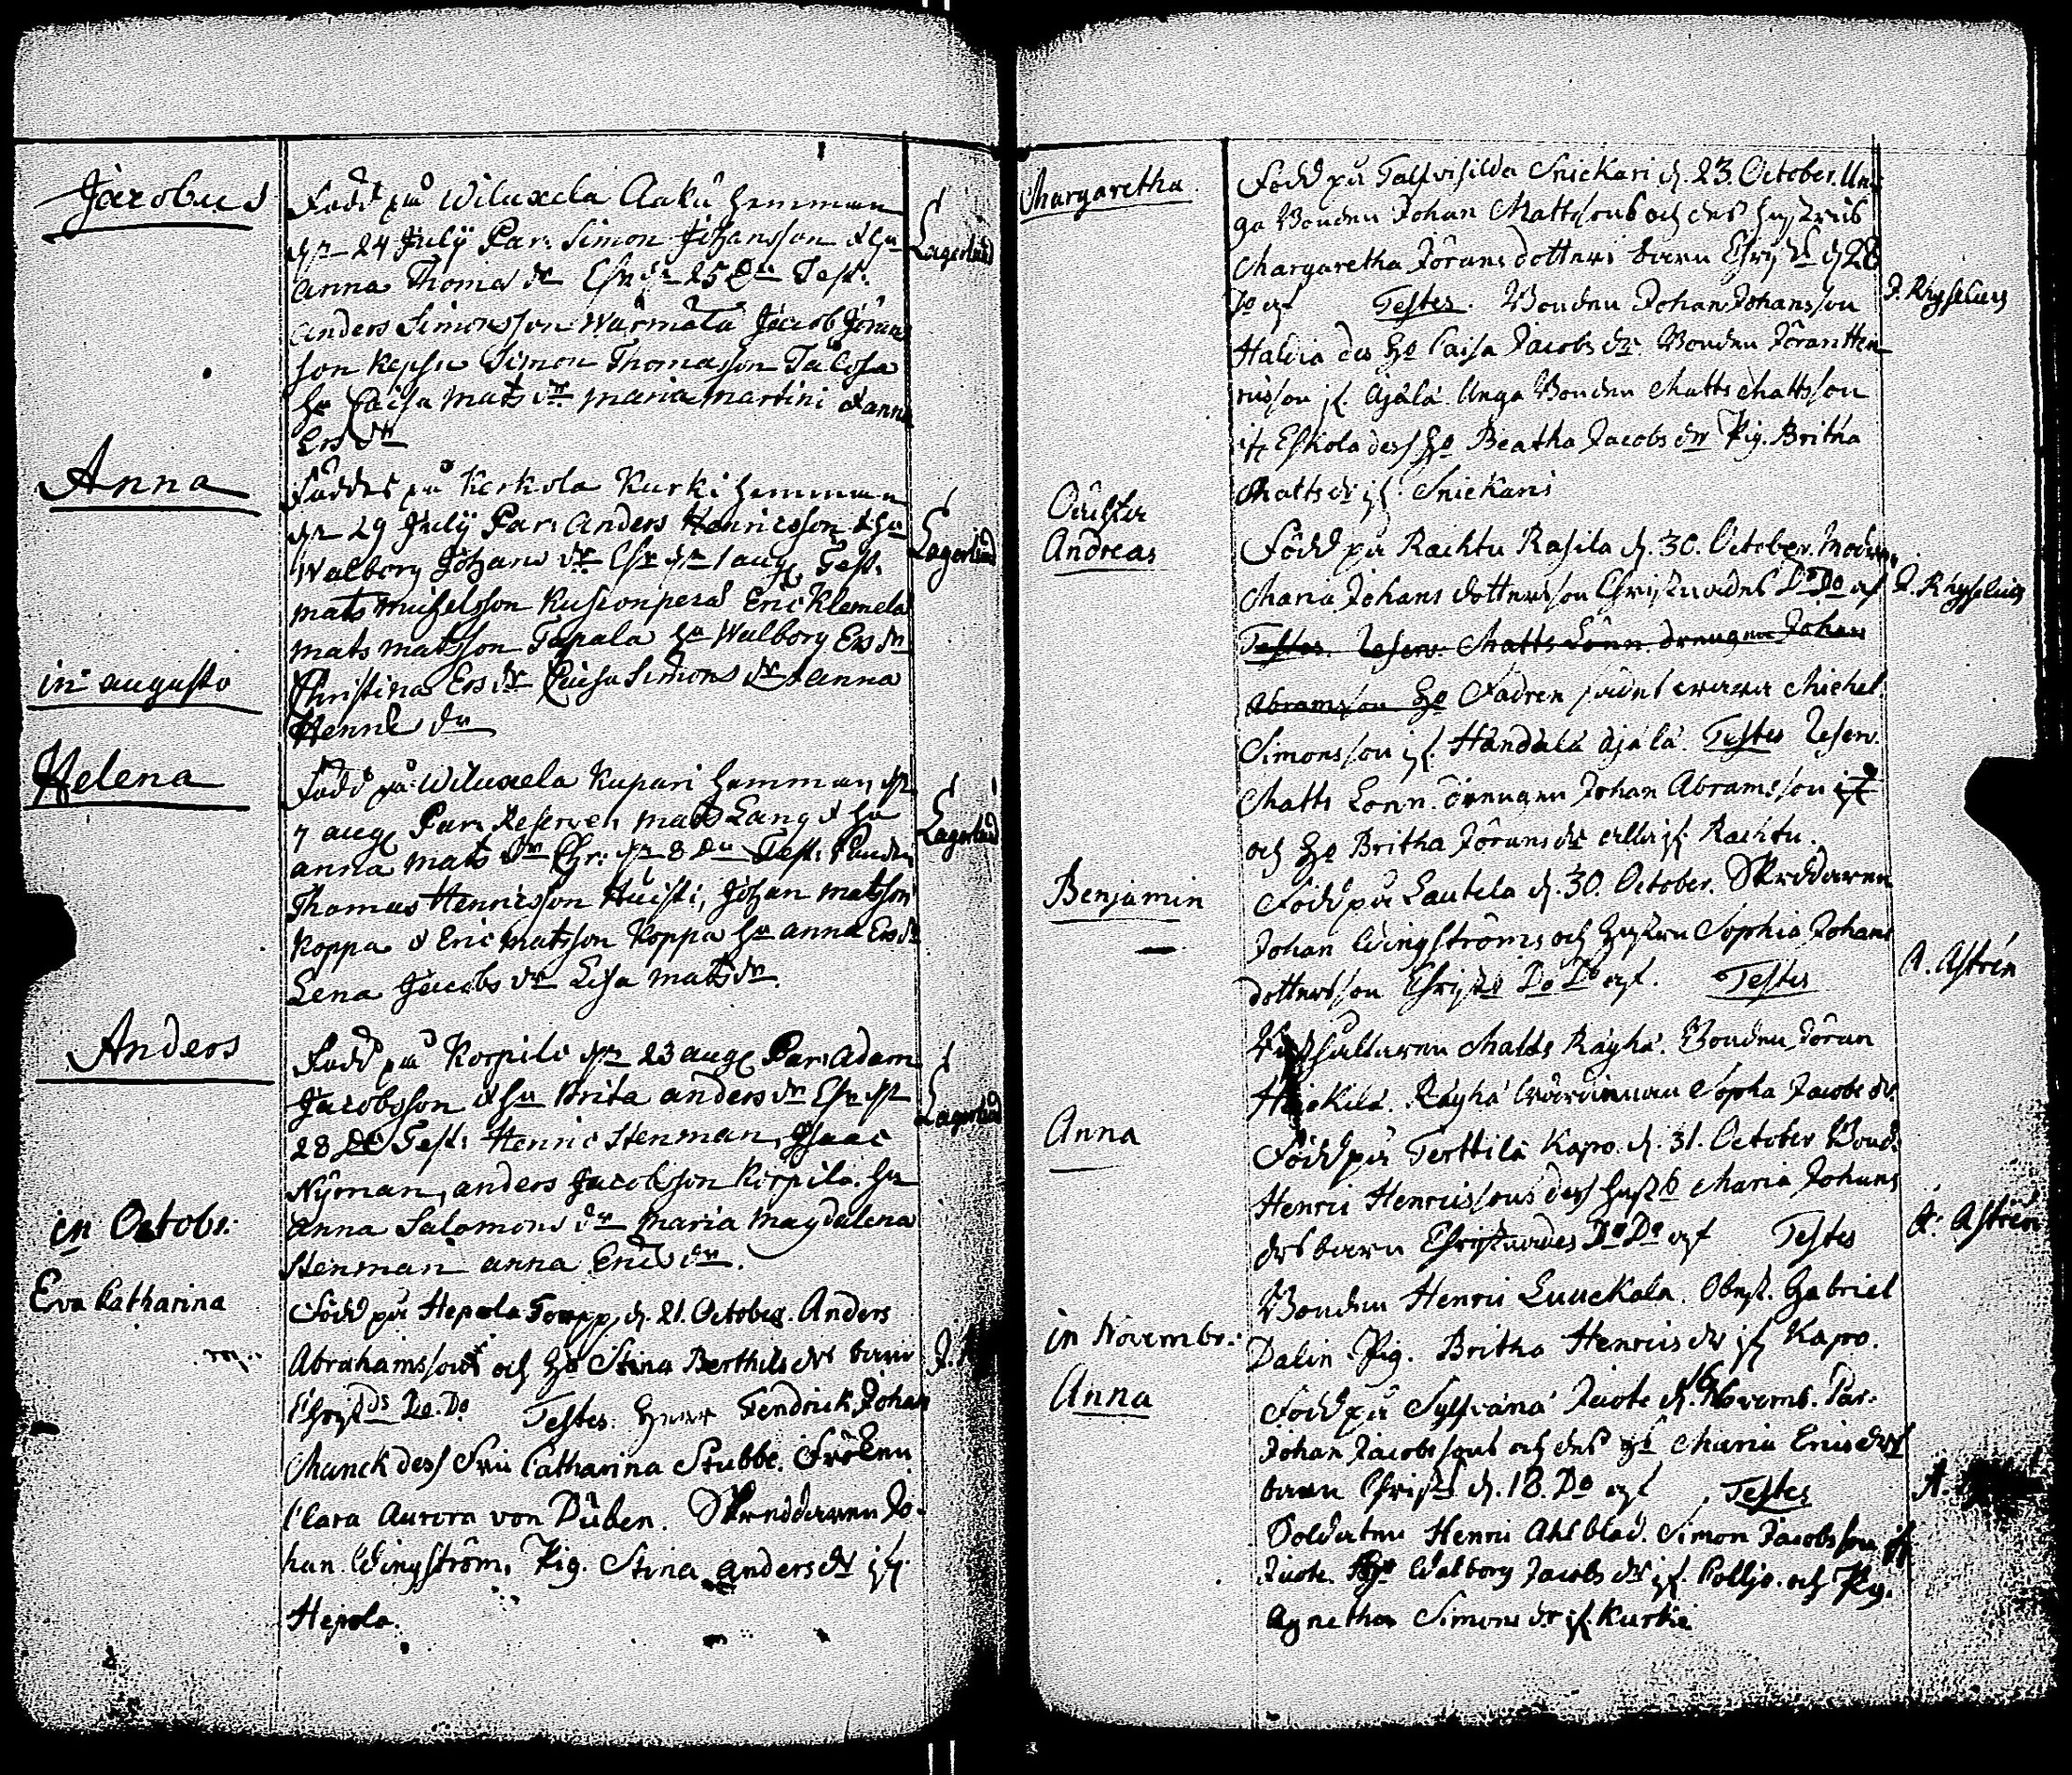 Jacobus
Född på Wiluxela Aaku hemman
dn 24 Julij Par. Simon Johansson & hu
Anna Thomas dr Chr dn 25 Du Test.
Anders Simonsson Wärmälä Jacob Jöran
son Kepsu Simon Thomasson Talosa
hu Caisa Mats dr Maria Martini & Anna
Ers dr
Lagerlund
Anna
Föddes på Kerkola Kurki hemman
dn 29 Julij Par. Anders Henricsson & hu
Walborg Johans dr Chr dn 1 aug Test.
Mats Michelsson Eric Klemelä
Mats Matsson Tapala hu Walborg Ers dr
Christina Ers dr Caisa Simons dr & Anna
Henric dr
Lagerlund
in augusto
Helena
Född på Wiluxela Kupari hemman dn
7 aug Par. Reserven Mats Lang & hu
Anna Mats dr Chr. dn 8 Du Test.
Thomas Henricsson Huisti, Johan Matsson
Koppa & Eric Matsson Koppa hu Anna Ers dr
Lena Jacobs dr Lisa Mats dr.
Lagerlund
Anders
Född på Korpilo dn 23 aug Par. Adam
Jacobsson & hu Brita Anders dr Chr dn
28 De Test. Henric Stenman, Isaac
Nÿman, Anders Jacobsson Korpilo. hu
Anna Salomons dr Maria Magdalena
Stenman Anna Erics dr.
Lagerlund
in Octobr:
Eva Catharina
Född på Hepola Torpp d. 21. October. Anders
Abrahamssons och Ho Stina Berthils drs barn
Chrisds Do. Do Testes. Herr Fendrick Johan
Munck dess Fru Catharina Stubbe. Fröken
Clara Aurora von Düben. Skreddaren Jo-
han Wingström, Pig. Stina Anders dr if
Hepola.
Margaretha
Född på Talfvisilda Snickari d. 23. October. Un-
ga Bonden Johan Mattssons och des hustrus
Margaretha Jörans dotters barn Chrisds d 26
Do af Testes. Bonden Johan Johansson
Haldia des Ho Caisa Jacobs dr. Bonden Jöran Hen
ricsson if. Ajälä. Unga Bonden Matts Mattsson
if Eskola dess Ho Beatha Jacobs dr Pig. Britha
Matts dr if. Snickari
J. Rhyselius
Oächta
Andreas
Född på Rachtu Rasila d. 30. October. Modren
Maria Johans dotters son Christnades Do Do af
Testes. Reserv. Matts Lönn. drengen Johan
Abramsson Ho Fadren sades wara Michel
Simonsson if. Händälä Ajälä. Testes Reserv.
Matts Lönn. drengen Johan Abramsson if
och Ho Britha Jörans dr alla if. Rachtu.
J. Rhyselius
Benjamin
Född på Lautela d. 30. October. Skreddaren
Johan Wingströms och hustru Sophia Johans
dotters son Chrisds Do Do af. Testes
Matts Räyhä. Bonden Jöran
Heickilä. Räyhä Wärdinnan Sopha Jacobs dr.
A. Astrén
Anna
Född på Terttilä Kapo. d. 31. October Bond.
Henric Henricssons dess hustrs Maria Johans
drs barn Christnades Do Do af Testes
Bonden Henric Luuckala. Gabriel
Dalin. Pig. Britha Henrics dr if Kapo.
A. Astrén
in Novembr:
Anna
Född på Sylfvänä Juote d. 16 Novemb. Par.
Johan Jacobssons och des Maria Erics drs
barn Chrisds d. 18. Do af Testes
Soldaten Henric Ahlblad. Simon Jacobsson if
Juote. Ho Walborg Jacobs dr if. Polljo. och Pig.
Agnetha Simons dr if. Kurtia
A.